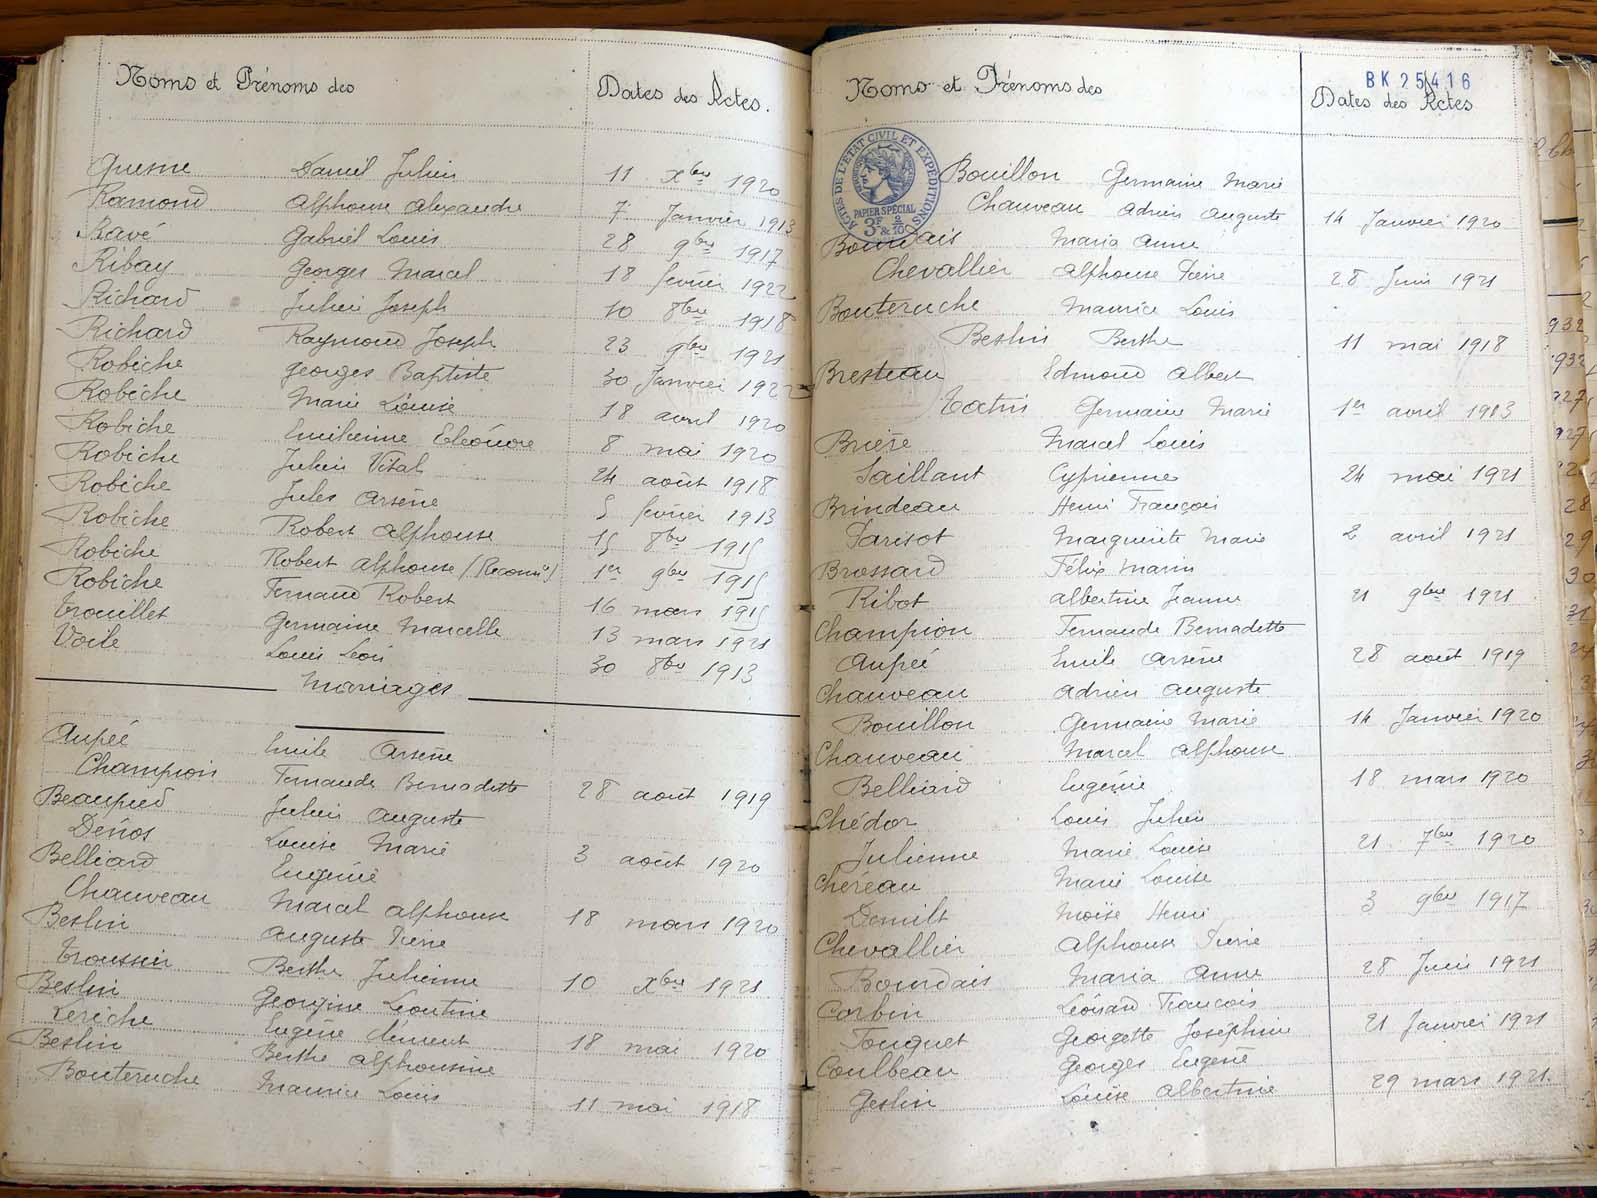 Noms et Prénoms des Dates des Actes.
Quesne Daniel Julien 11 Xbre 1920
Ramond Alphonse Alexandre 7 Janvier 1913
Ravé Gabriel Louis 28 9bre 1917
Ribay Georges Marcel 18 février 1922
Richard Julien Joseph 10 8bre 1918
Richard Raymond Joseph 23 9bre 1921
Robiche Georges Baptiste 30 Janvier 1922
Robiche Marie Louise 18 avril 1920
Robiche Emilienne Eléonore 8 mai 1920
Robiche Julien Vital 24 août 1918
Robiche Jules Arsène 5 février 1913
Robiche Robert Alphonse 15 8bre 1915
Robiche Robert Alphonse (Reconn) 1er 9bre 1915
Robiche Fernand Robert 16 mars 1915
Trouillet Germaine Marcelle 13 mars 1921
Voile Louis Léon 30 8bre 1913
Mariages
Aupée Emile Arsène
Champion Fernande Bernadette 28 août 1919
Beaupied Julien Auguste
Denos Louise Marie 3 août 1920
Belliard Eugénie
Chauveau Marcel Alphonse 18 mars 1920
Beslin Auguste Pierre
Troussier Berthe Julienne 10 Xbre 1921
Beslin Georgine Léontine
Leriche Eugène Clément 18 mai 1920
Beslin Berthe Alphonsine
Bouteruche Maurice Louis 11 mai 1918
Noms et Prénoms des Dates des Actes
BK 25416
ACTES DE L'ETAT CIVIL ET EXPEDITIONS
PAPIER SPÉCIAL
3F & 2/10
Bouillon Germaine Marie
Chauveau Adrien Auguste 14 Janvier 1920
Bourdais Maria Anne
Chevallier Alphonse Pierre 28 Juin 1921
Bouteruche Maurice Louis
Beslin Berthe 11 mai 1918
Bresteau Edmond Albert
Germaine Marie 1er avril 1913
Brière Marcel Louis
Saillant Cyprienne 24 mai 1921
Brindeau Henri François
Parisot Marguerite Marie 2 avril 1921
Brossard Félix Marin
Ribot Albertine Jeanne 21 9bre 1921
Champion Fernande Bernadette
Aupée Emile Arsène 28 août 1919
Chauveau Adrien Auguste
Bouillon Germaine Marie 14 Janvier 1920
Chauveau Marcel Alphonse
Belliard Eugénie 18 mars 1920
Chédor Louis Julien
Julienne Marie Louise 21 7bre 1920
Chéreau Marie Louise
Moïse Henri 3 9bre 1917
Chevallier Alphonse Pierre
Bourdais Maria Anne 28 Juin 1921
Corbin Léonard François
Fouquet Georgette Joséphine 21 Janvier 1921
Coulbeau Georges Eugène
Geslin Louise Albertine 29 mars 1921.